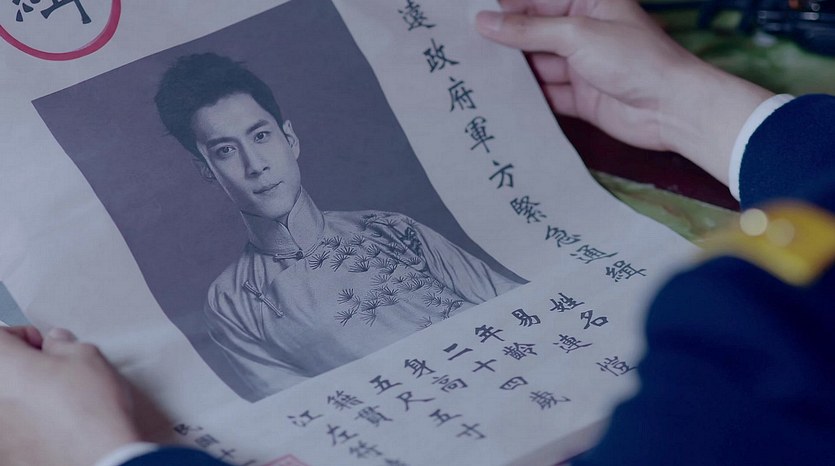 緝
遠政府軍方緊急通緝
姓名
易連愷
年齡
二十四歲
身高
五尺五寸
籍貫
江左符
民國十